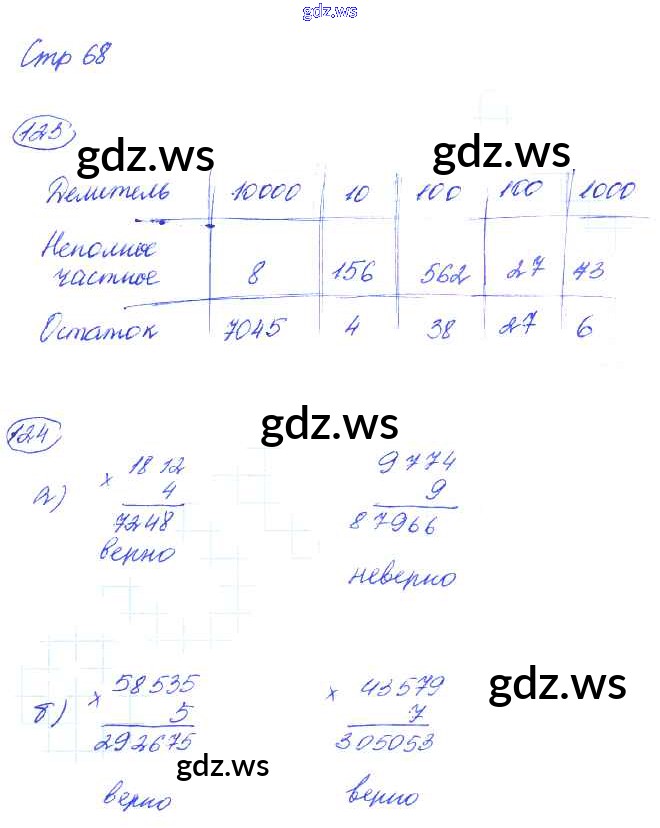 gdz.ws
Стр 68
125
gdz.ws
gdz.ws
Делитель 10000 10 100 100 1000
Неполное
частное 8 156 562 27 43
Остаток 7045 4 38 27 6
gdz.ws
124
а) × 1812 9774
4 9
7248 87966
верно неверно
gdz.ws
б) × 58535 × 43579
5 7
292675 305053
gdz.ws
верно верно